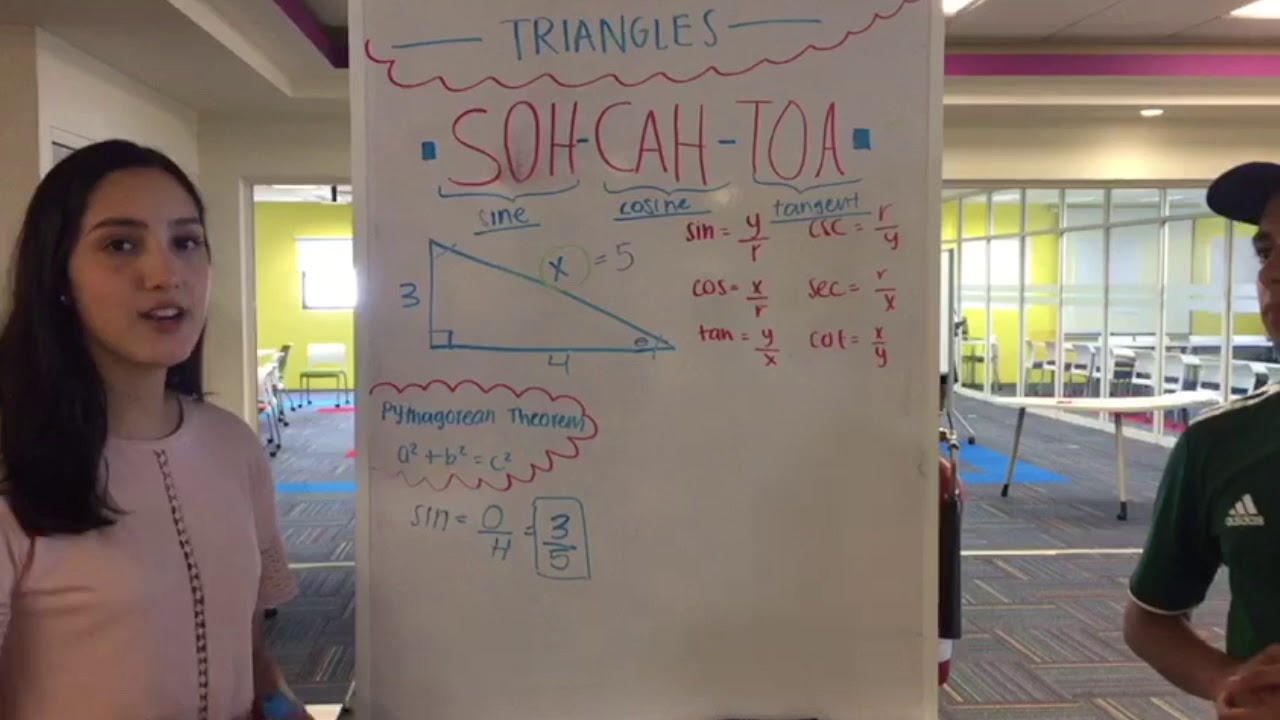 TRIANGLES
SOH-CAH-TOA
sine cosine tangent
sin = y/r csc = r/y
x = 5
3
cos = x/r sec = r/x
tan = y/x cot = x/y
θ
4
Pythagorean Theorem
a² + b² = c²
sin = O/H = 3/5
adidas